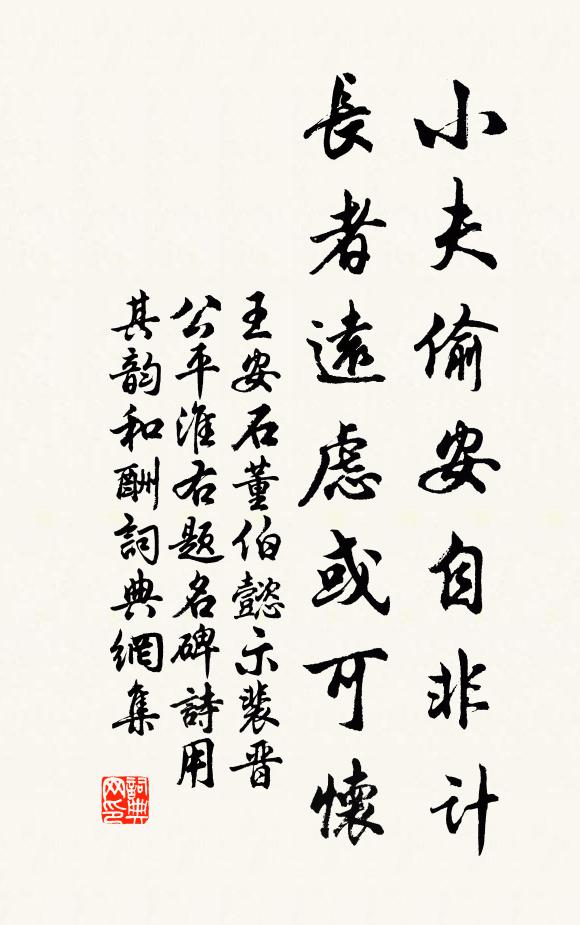 小夫偷安自非计
長者遠慮或可懷
王安石董伯懿示裴晋
公平淮右题名碑詩用
其韵和酬詞典網集
詞典网印